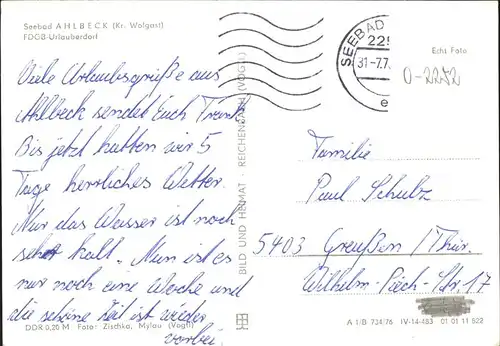 Seebad AHLBECK (Kr. Wolgast)
FDGB-Urlauberdorf
Viele Urlaubsgrüße aus
Ahlbeck sendet Euch
Bis jetzt hatten wir 5
Tage herrliches Wetter.
Nur das Wasser ist noch
sehr kalt. Nun ist es
nur noch eine Woche und
die schöne Zeit ist wieder
vorbei.
DDR 0,20 M Foto: Zischka, Mylau (Vogtl)
BILD UND HEIMAT · REICHENBACH (VOGTL)
SEEBAD
225
31-7.7
e
Echt Foto
O-2252
Familie
Paul Schulz
5403 Greußen/Thür.
Wilhelm-Pieck-Str. 17
A 1/B 734/76 IV-14-483 01 01 11 522